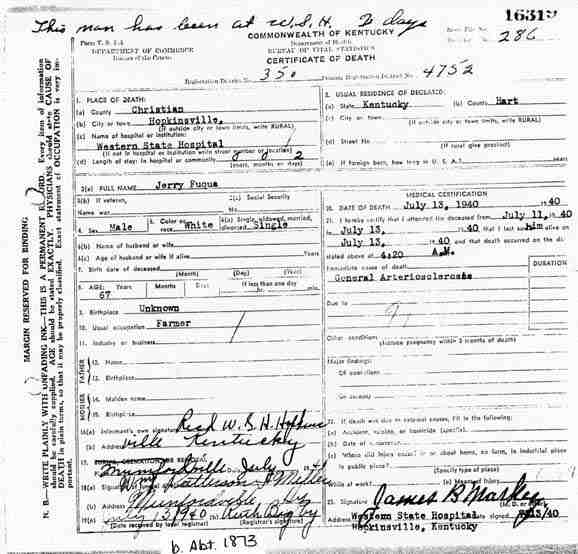 This man has been at W.S.H. 2 days
16319
COMMONWEALTH OF KENTUCKY
Form V. S. 1-A
Department of Health
State File No.
DEPARTMENT OF COMMERCE
BUREAU OF VITAL STATISTICS
286
Bureau of the Census
CERTIFICATE OF DEATH
Registration District No. 350
Primary Registration District No. 4752
1. PLACE OF DEATH:
(a) County Christian
(b) City or town Hopkinsville,
(If outside city or town limits, write RURAL)
(c) Name of hospital or institution:
Western State Hospital
(If not in hospital or institution write street number or location)
(d) Length of stay: In hospital or community 0 0 2
(years, months or days)
2. USUAL RESIDENCE OF DECEASED:
(a) State Kentucky (b) County Hart
(c) City or town
(If outside city or town limits, write RURAL)
(d) Street No
(If rural give precinct)
(e) If foreign born, how long in U. S. A.? years
3(a) FULL NAME Jerry Fuqua
3(b) If veteran,
Name war
3(c) Social Security
No.
4. Sex Male
5. Color or race White
6(a) Single, widowed, married, divorced Single
6(b) Name of husband or wife
6(c) Age of husband or wife if alive Years
7. Birth date of deceased
(Month) (Day) (Year)
8. AGE: Years Months Days If less than one day
67 hr. min.
9. Birthplace Unknown
10. Usual occupation Farmer
11. Industry or business
FATHER
12. Name
13. Birthplace
MOTHER
14. Maiden name
15. Birthplace
16(a) Informant's own signature Rcd W. S. H. Hopkins
(b) Address ville Kentucky
17. BURIAL, CREMATION OR REMOVAL
Munfordville July
18(a) Signature of funeral director
Munfordville
19(a) 1940 (b) Ruth Bigby
(Date received by local registrar) (Registrar's signature)
MEDICAL CERTIFICATION
20. DATE OF DEATH July 13, 1940 1940
21. I hereby certify that I attended the deceased from July 11, 1940
to July 13, 1940 that I last saw him alive on
July 13, 1940 and that death occurred on the date
stated above at 4:20 A.M.
Immediate cause of death
DURATION
General Arteriosclerosis
Due to
Other conditions
(Include pregnancy within 3 months of death)
Major findings:
Of operations
Of autopsy
22. If death was due to external causes, fill in the following:
(a) Accident, suicide, or homicide (specify)
(b) Date of occurrence
(c) Where did injury occur? In or about home, on farm, in industrial place,
in public place?
(Specify type of place)
While at work? (e) Means of injury
23. Signature James B Markey
(M. D. or other)
Address Western State Hospital Date signed 7/13/40
Hopkinsville, Kentucky
MARGIN RESERVED FOR BINDING
N. B.—WRITE PLAINLY WITH UNFADING INK—THIS IS A PERMANENT RECORD. Every item of information
should be carefully supplied. AGE should be stated EXACTLY. PHYSICIANS should state CAUSE OF
DEATH in plain terms, so that it may be properly classified. Exact statement of OCCUPATION is very im-
portant.
b. Abt. 1873